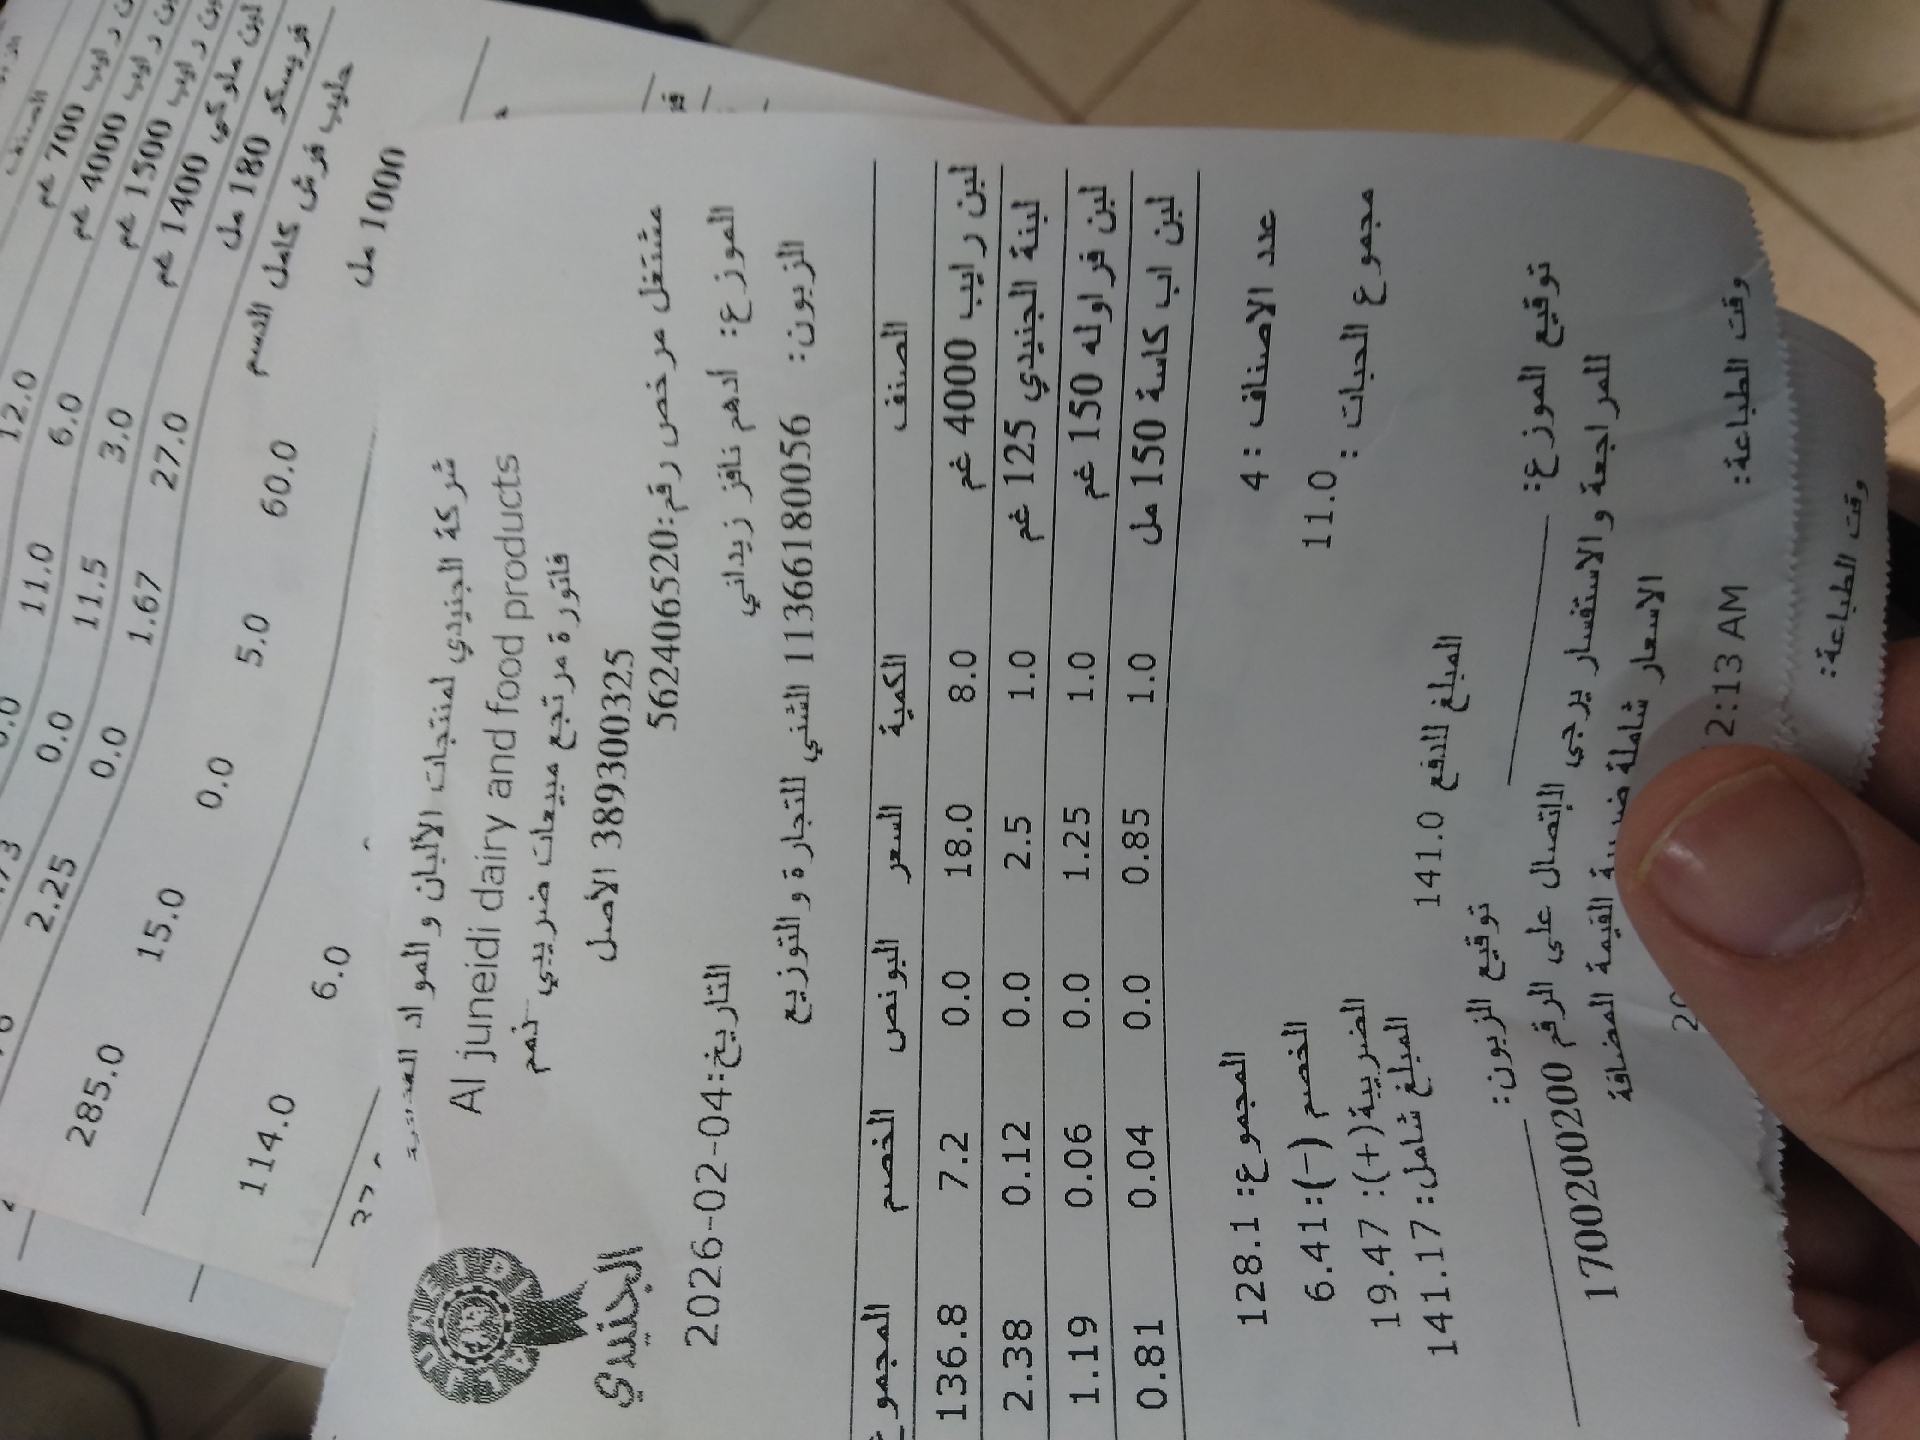 700 غم
لبن رايب 4000 غم
12.0
لبن رايب 1500 غم
6.0 11.0 0.0
لبن ملوكي 1400 غم
3.0 11.5 0.0 2.25
فريسكو 180 مل
27.0 1.67 0.0 15.0 285.0
حليب فرش كامل الدسم
1000 مل
60.0 5.0 0.0 6.0 114.0
شركة الجنيدي لمنتجات الألبان والمواد الغذائية
Al juneidi dairy and food products
فاتورة مرتجع مبيعات ضريبي
389300325 الأصل
JUNEIDI
الجنيدي
مشتغل مرخص رقم:562406520
الموزع: ادهم نافز زيداني
التاريخ:2026-02-04
الزبون: 11366180056 الشني للتجارة والتوزيع
الصنف الكمية السعر البونص الخصم المجموع
لبن رايب 4000 غم 8.0 18.0 0.0 7.2 136.8
لبنة الجنيدي 125 غم 1.0 2.5 0.0 0.12 2.38
لبن فراوله 150 غم 1.0 1.25 0.0 0.06 1.19
لبن اب كاسة 150 مل 1.0 0.85 0.0 0.04 0.81
عدد الاصناف : 4
المجموع: 128.1
مجموع الحبات : 11.0
الخصم (-): 6.41
الضريبة(+): 19.47
المبلغ شامل: 141.17
المبلغ للدفع 141.0
توقيع الموزع:
توقيع الزبون:
للمراجعة والاستفسار يرجى الإتصال على الرقم 1700200200
الاسعار شاملة ضريبة القيمة المضافة
وقت الطباعة: 2:13 AM
وقت الطباعة: